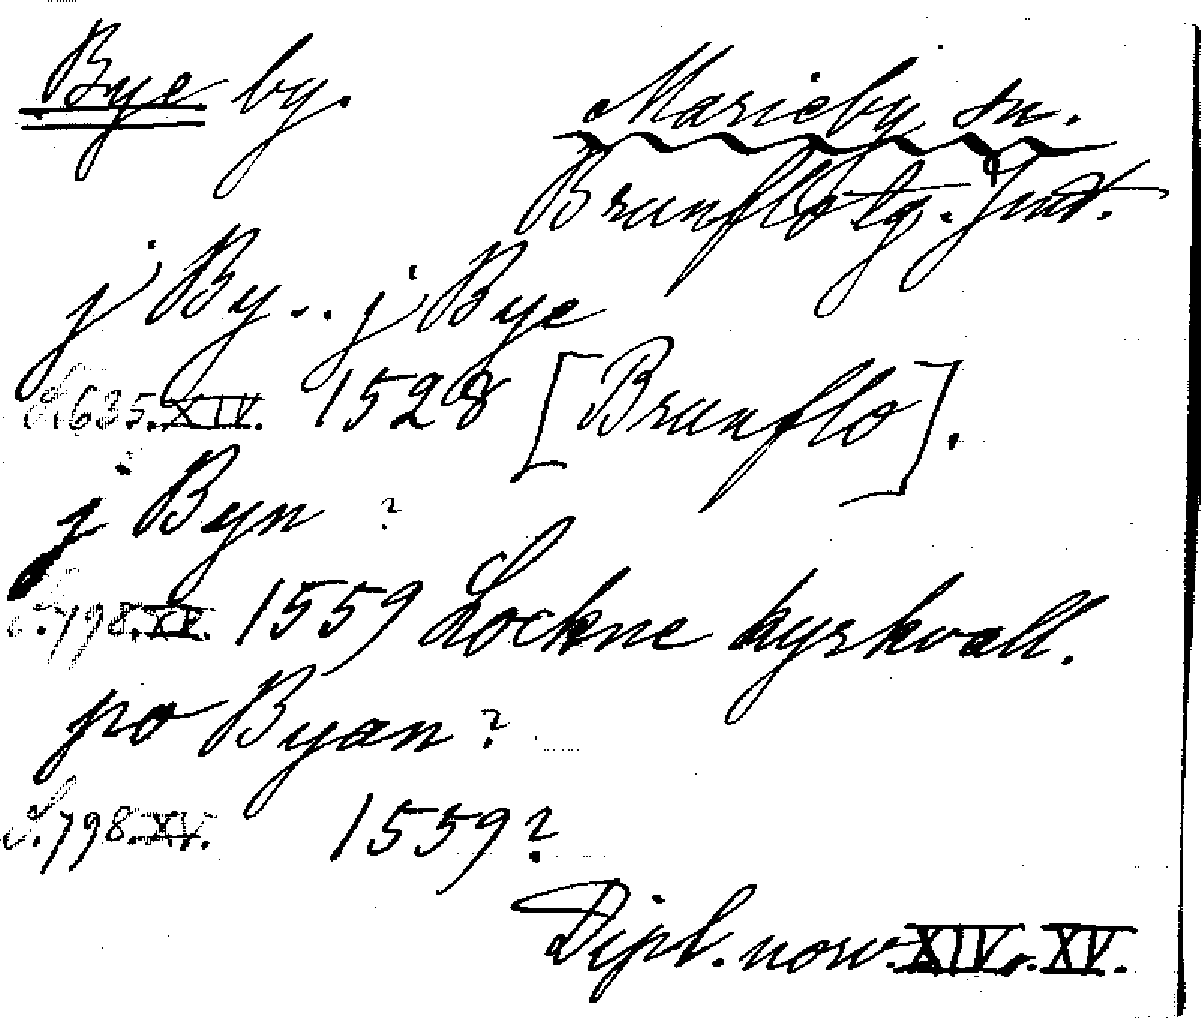 Bye by. Marieby sn.
Brunflo tg. Jmt.
j By.. j Bye
S.635.XIV. 1528 [Brunflo].
j Byn ?
S.798.XV. 1559 Lockne kyrkvall.
po Byan ?
S.798.XV. 1559?
Dipl. norv. XIV o. XV.